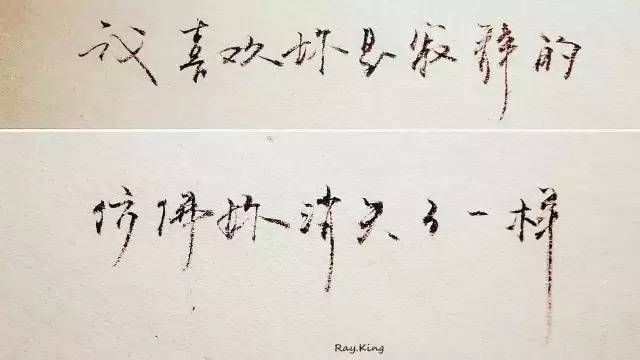 我喜欢妳是寂静的
仿佛妳消失了一样
Ray.King